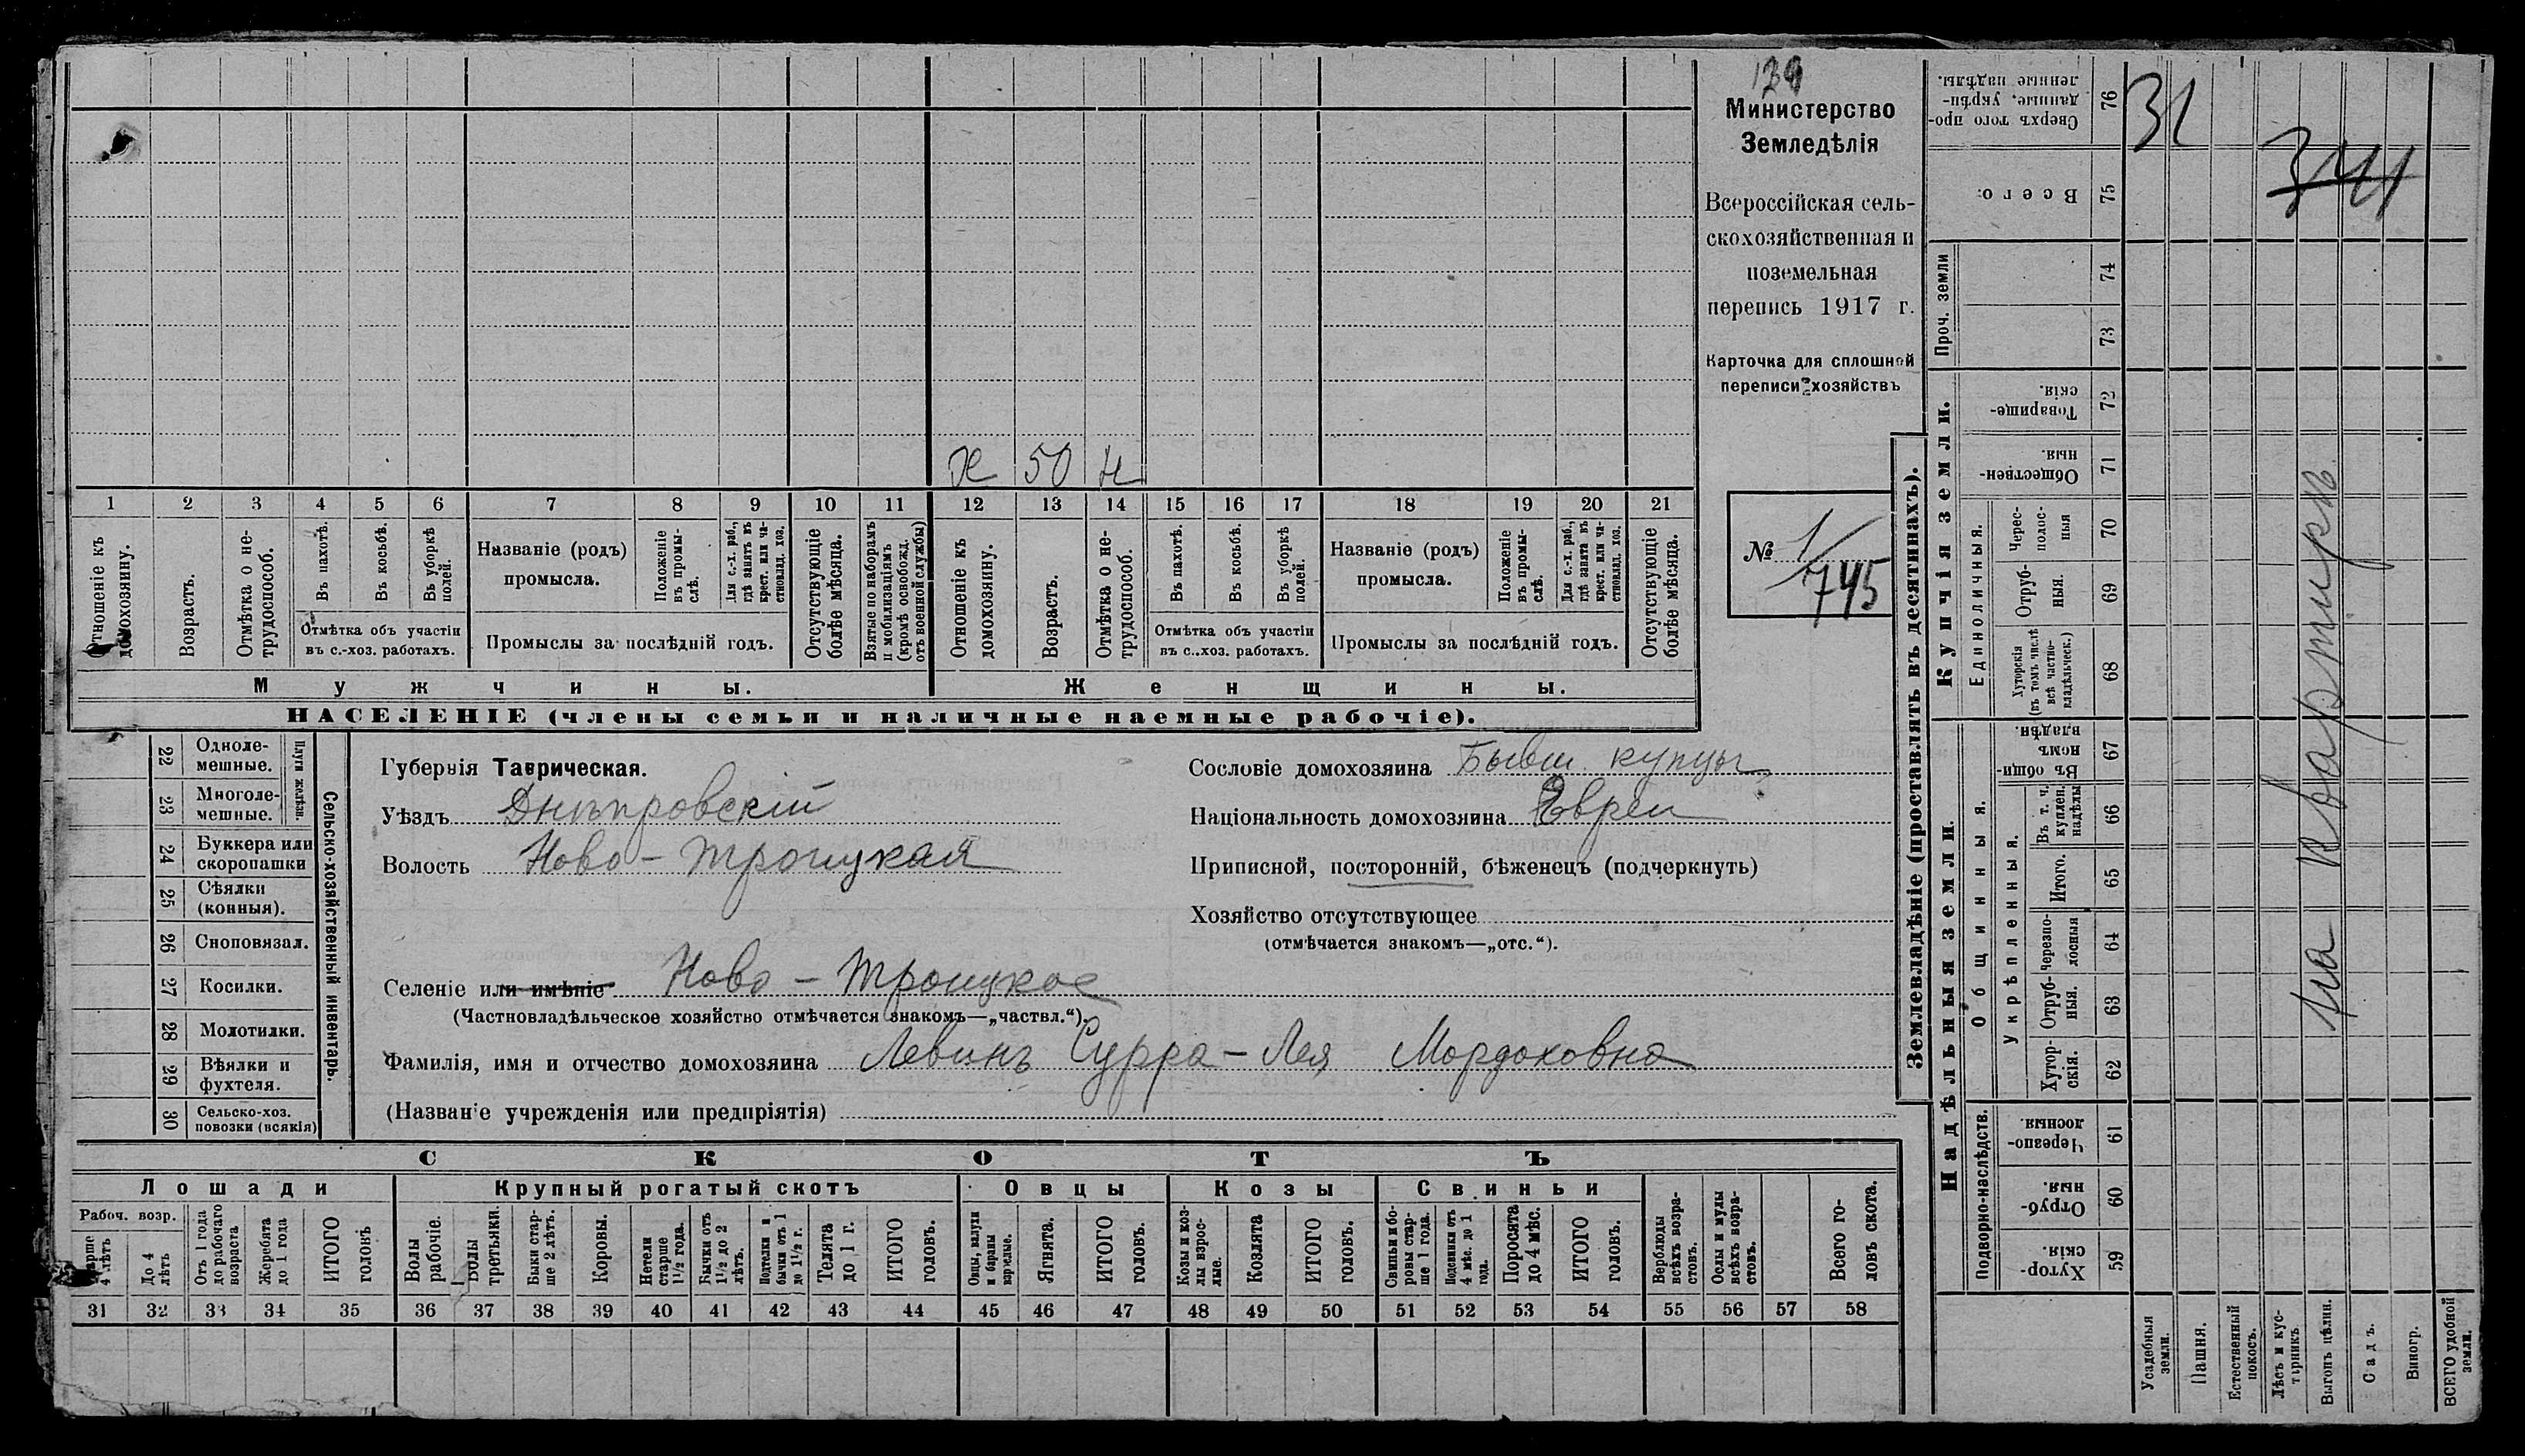 Министерство
Земледѣлія
Всероссійская сель-
скохозяйственная и
поземельная
перепись 1917 г.
Карточка для сплошной
переписи хозяйствъ
№ 1/745
ж 50 н
1 2 3 4 5 6 7 8 9 10 11 12 13 14 15 16 17 18 19 20 21
Отношеніе къ домохозяину.
Возрастъ.
Отмѣтка о не-трудоспособ.
Въ пахотѣ.
Въ косьбѣ.
Въ уборкѣ полей.
Отмѣтка объ участіи
въ с.-хоз. работахъ.
Названіе (родъ)
промысла.
Положеніе въ промы-слѣ.
Для с.-х. раб., гдѣ занятъ въ крест. или ча-стновлад. хоз.
Промыслы за послѣдній годъ.
Отсутствующіе болѣе мѣсяца.
Взятые по наборамъ и мобилизаціямъ (кромѣ освобожд. отъ военной службы)
Отношеніе къ домохозяину.
Возрастъ.
Отмѣтка о не-трудоспособ.
Въ пахотѣ.
Въ косьбѣ.
Въ уборкѣ полей.
Отмѣтка объ участіи
въ с.-хоз. работахъ.
Названіе (родъ)
промысла.
Положеніе въ промы-слѣ.
Для с.-х. раб., гдѣ занята въ крест. или ча-стновлад. хоз.
Промыслы за послѣдній годъ.
Отсутствующіе болѣе мѣсяца.
Мужчины.
Женщины.
НАСЕЛЕНІЕ (члены семьи и наличные наемные рабочіе).
Сельско-хозяйственный инвентарь.
Плуги желѣзн.
22 Одноле-мешные.
23 Многоле-мешные.
24 Буккера или скоропашки
25 Сѣялки (конныя).
26 Сноповязал.
27 Косилки.
28 Молотилки.
29 Вѣялки и фухтеля.
30 Сельско-хоз. повозки (всякія)
Губернія Таврическая.
Уѣздъ Днѣпровскій
Волость Ново-Троицкая
Селеніе или имѣніе Ново-Троицкое
(Частновладѣльческое хозяйство отмѣчается знакомъ—„частвл.“).
Фамилія, имя и отчество домохозяина Левинъ Сурра-Лея Мордоховна
(Названіе учрежденія или предпріятія)
Сословіе домохозяина Бывш. купцы
Національность домохозяина Евреи
Приписной, посторонній, бѣженецъ (подчеркнуть)
Хозяйство отсутствующее
(отмѣчается знакомъ—„отс.“).
СКОТЪ
Лошади
Крупный рогатый скотъ
Овцы
Козы
Свиньи
Рабоч. возр.
Старше 4 лѣтъ
До 4 лѣтъ
Отъ 1 года до рабочаго возраста
Жеребята до 1 года
ИТОГО головъ
Волы рабочіе.
Волы третьяки.
Быки стар-ше 2 лѣтъ.
Коровы.
Нетели старше 1½ года.
Бычки отъ 1½ до 2 лѣтъ.
Подтелки и бычки отъ 1 до 1½ г.
Телята до 1 г.
ИТОГО головъ.
Овцы, валухи и бараны взрослые.
Ягнята.
ИТОГО головъ.
Козы и коз-лы взрос-лые.
Козлята
ИТОГО головъ.
Свиньи и бо-ровы стар-ше 1 года.
Подсвинки отъ 4 мѣс. до 1 года.
Поросята до 4 мѣс.
ИТОГО головъ.
Верблюды всѣхъ возра-стовъ.
Ослы и мулы всѣхъ возра-стовъ.
Всего го-ловъ скота.
31 32 33 34 35 36 37 38 39 40 41 42 43 44 45 46 47 48 49 50 51 52 53 54 55 56 57 58
Землевладѣніе (проставлять въ десятинахъ).
Надѣльныя земли.
Купчія земли.
Проч. земли
Подворно-наслѣдств.
Общинныя.
Укрѣпленныя.
Единоличныя.
Хутор-скія. 59
Отруб-ныя. 60
Черезпо-лосныя. 61
Хутор-скія. 62
Отруб-ныя. 63
Черезпо-лосныя 64
Итого. 65
Въ т. ч. куплен. надѣлы 66
Въ общин-номъ владѣн. 67
Хуторскія (въ томъ числѣ всѣ частно-владѣльческ.) 68
Отруб-ныя. 69
Черес-полос-ныя 70
Обществен-ныя. 71
Товарище-скія. 72
73
74
Всего. 75
Сверхъ того про-данные, укрѣп-ленные надѣлы. 76
Усадебныя земли.
Пашня.
Естественный покосъ.
Лѣсъ и кус-тарникъ
Выгонъ цѣлин.
Садъ.
Виногр.
ВСЕГО удобной земли.
31
На квартирѣ